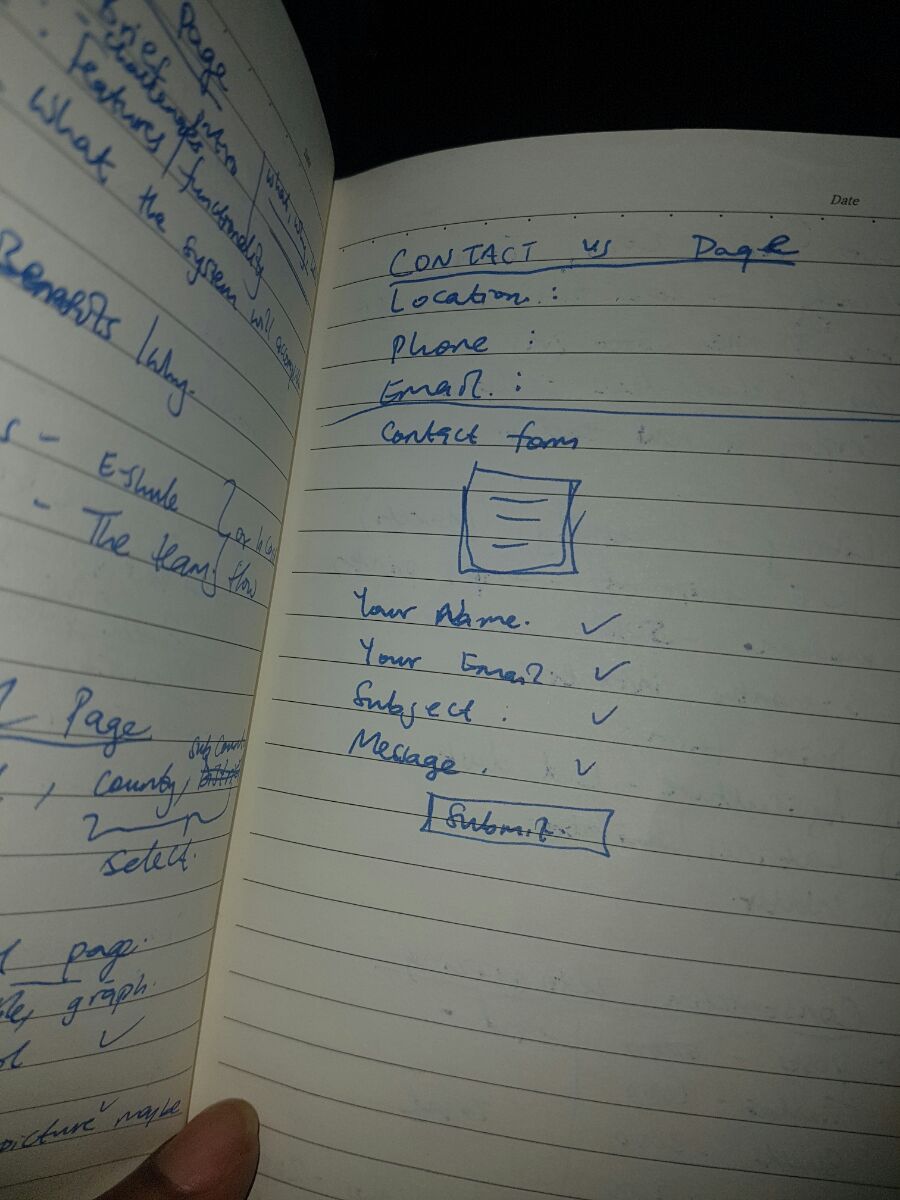 Page
- Brief intro
- challenges
. Features / functionality
- What the system will
What, why,
Benefits / why.
s - E-Shule
- The team
flow
Page
, County, Sub County
select.
page.
graph.
picture maybe
Date
CONTACT us Page
Location :
Phone :
Email :
Contact form
Your Name. ✓
Your Email ✓
Subject : ✓
Message . ✓
Submit.